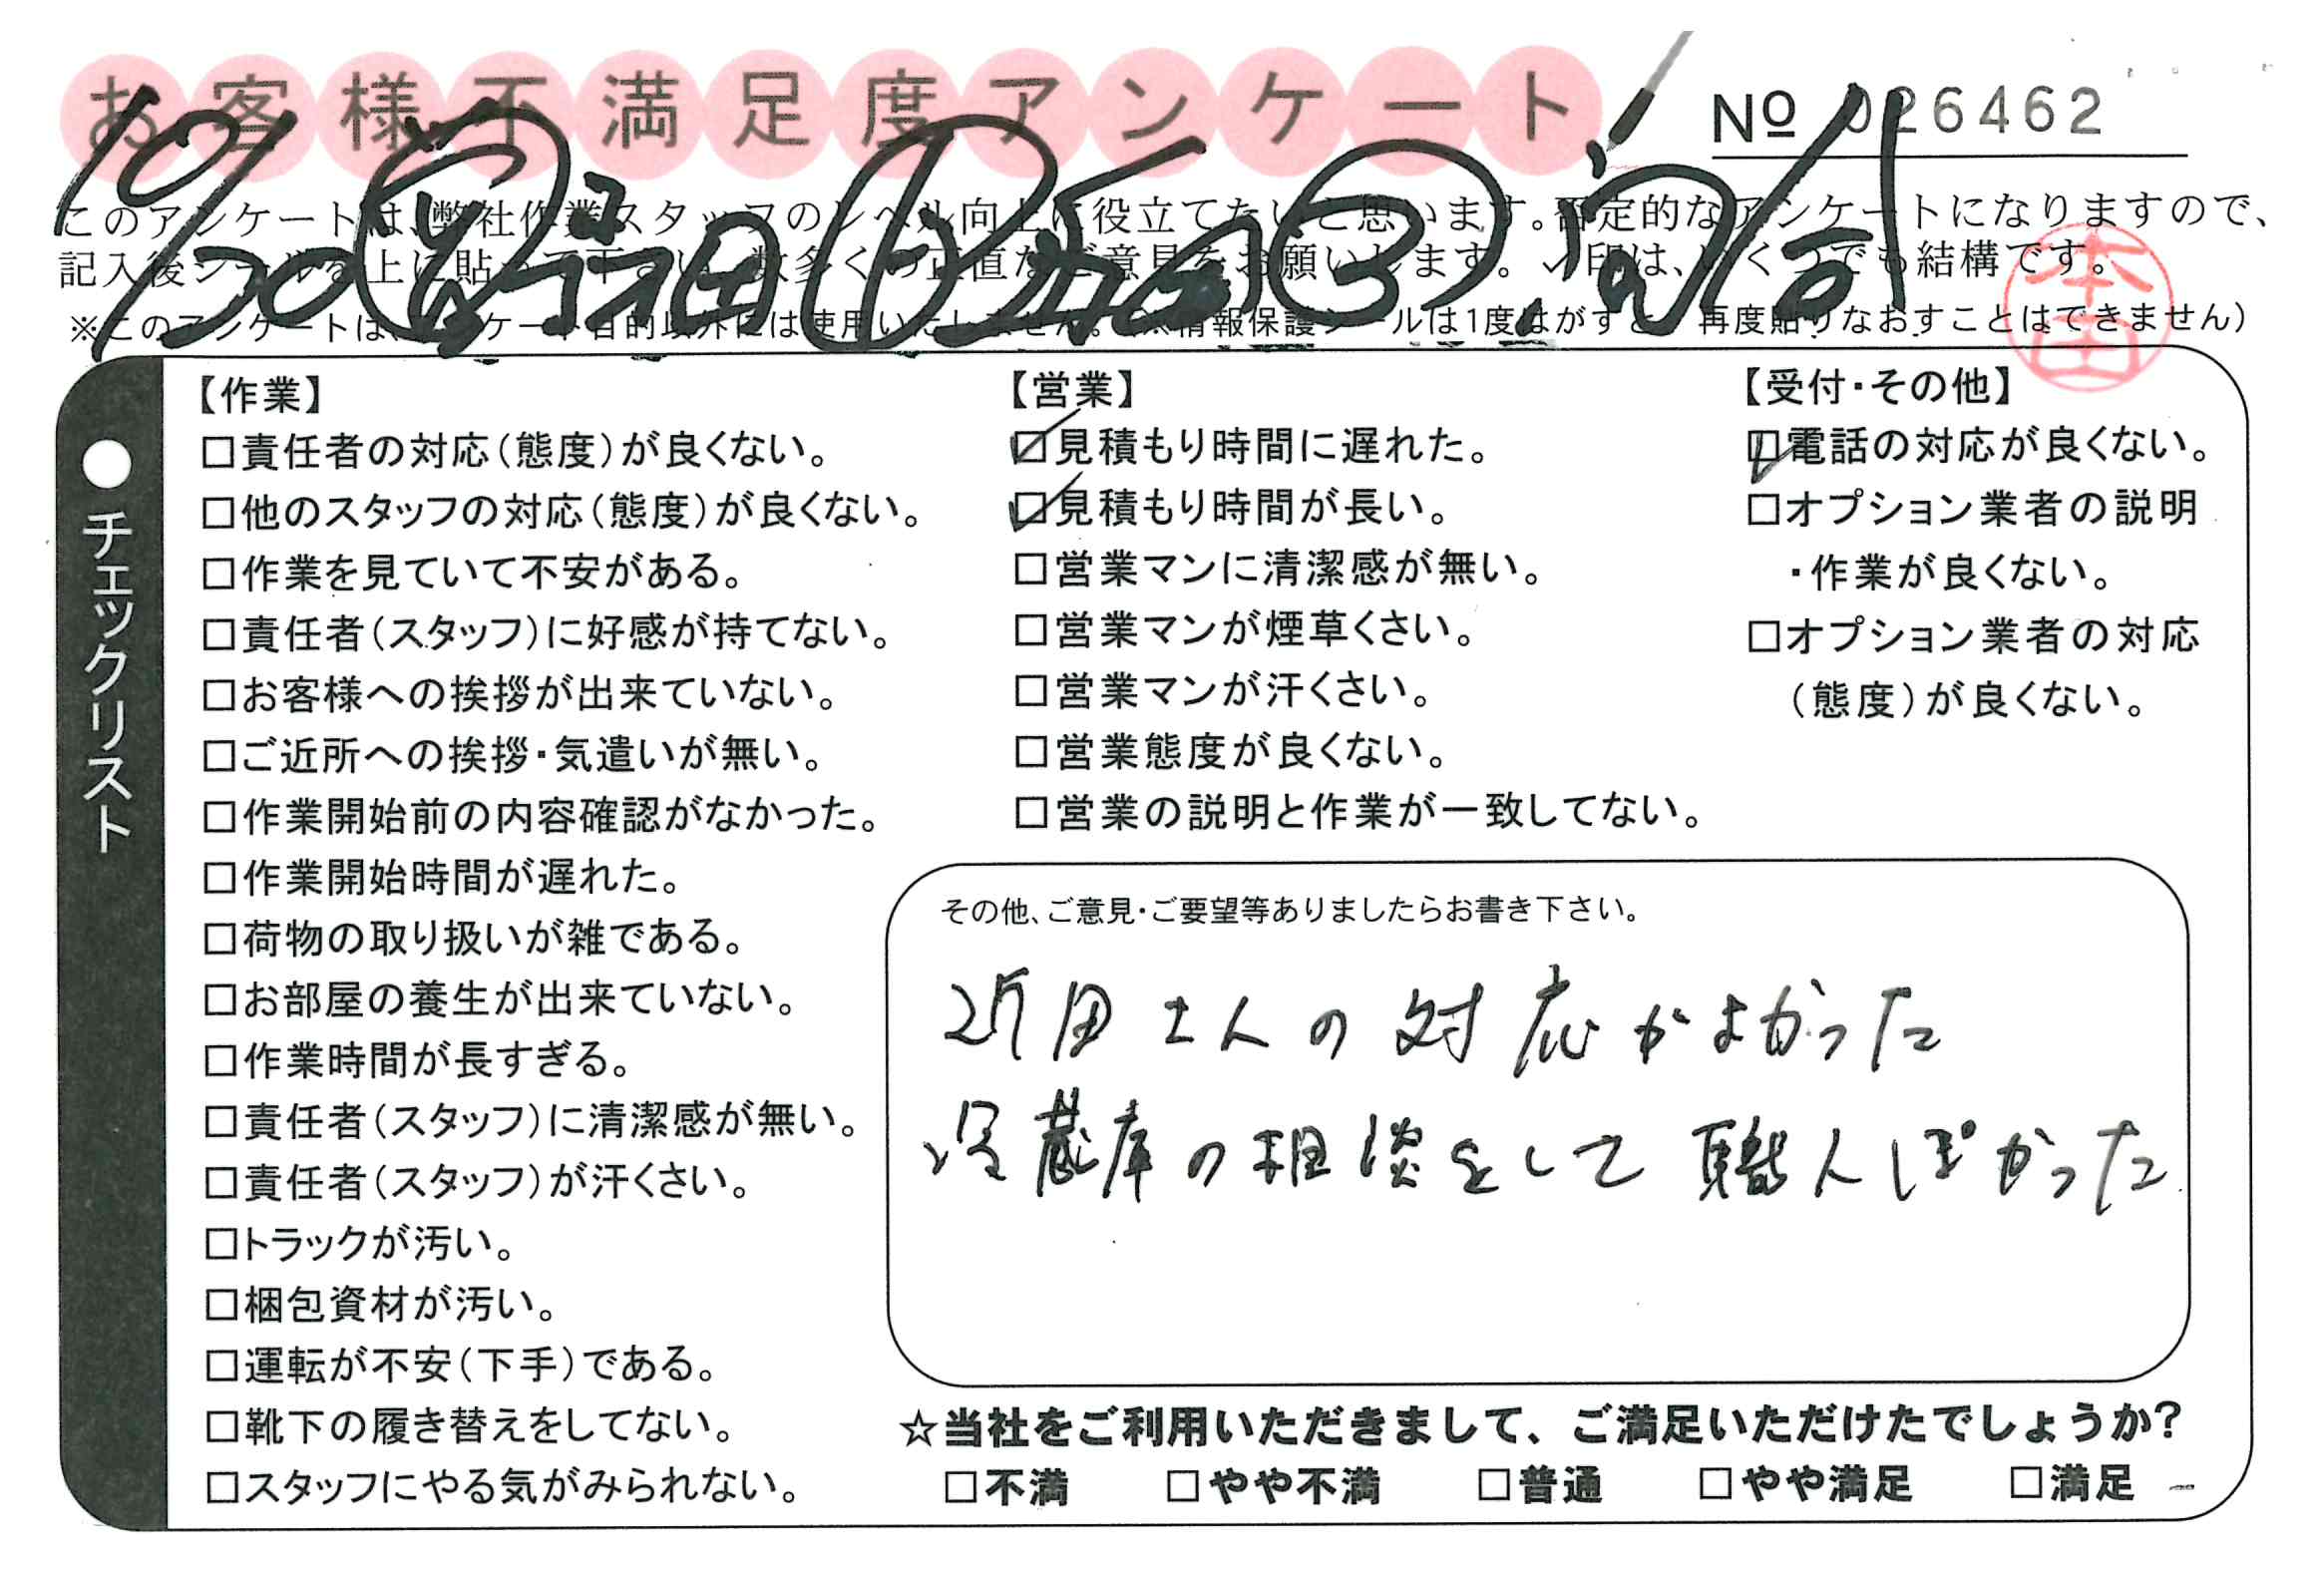 お客様不満足度アンケート
№ 026462
10/20
このアンケートは、弊社作業スタッフのレベル向上に役立てたいと思います。否定的なアンケートになりますので、
記入後シールを上に貼って下さい。数多くの正直なご意見をお願いします。✓印は、いくつでも結構です。
※このアンケートは、アンケート目的以外には使用いたしません。(※情報保護シールは1度はがすと、再度貼りなおすことはできません)
本田
●チェックリスト
【作業】
□責任者の対応(態度)が良くない。
□他のスタッフの対応(態度)が良くない。
□作業を見ていて不安がある。
□責任者(スタッフ)に好感が持てない。
□お客様への挨拶が出来ていない。
□ご近所への挨拶・気遣いが無い。
□作業開始前の内容確認がなかった。
□作業開始時間が遅れた。
□荷物の取り扱いが雑である。
□お部屋の養生が出来ていない。
□作業時間が長すぎる。
□責任者(スタッフ)に清潔感が無い。
□責任者(スタッフ)が汗くさい。
□トラックが汚い。
□梱包資材が汚い。
□運転が不安(下手)である。
□靴下の履き替えをしてない。
□スタッフにやる気がみられない。
【営業】
☑見積もり時間に遅れた。
☑見積もり時間が長い。
□営業マンに清潔感が無い。
□営業マンが煙草くさい。
□営業マンが汗くさい。
□営業態度が良くない。
□営業の説明と作業が一致してない。
【受付・その他】
☑電話の対応が良くない。
□オプション業者の説明
・作業が良くない。
□オプション業者の対応
(態度)が良くない。
その他、ご意見・ご要望等ありましたらお書き下さい。
の対応がよかった
冷蔵庫の相談をして職人ぽかった
☆当社をご利用いただきまして、ご満足いただけたでしょうか?
□不満 □やや不満 □普通 □やや満足 □満足